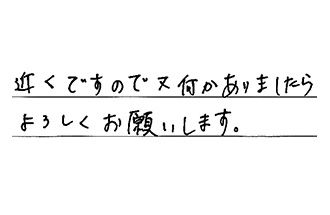 近くですので又何かありましたら
よろしくお願いします。